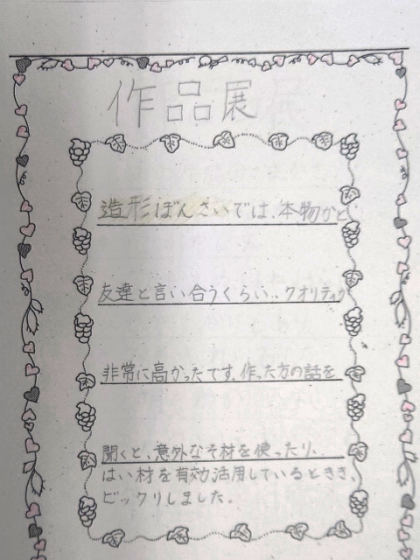 作品展
造形ぼんさいでは、本物かと
友達と言い合うくらい、クオリティが
非常に高かったです。作った方の話を
聞くと、意外なそ材を使ったり、
はい材を有効活用しているときき、
ビックリしました。